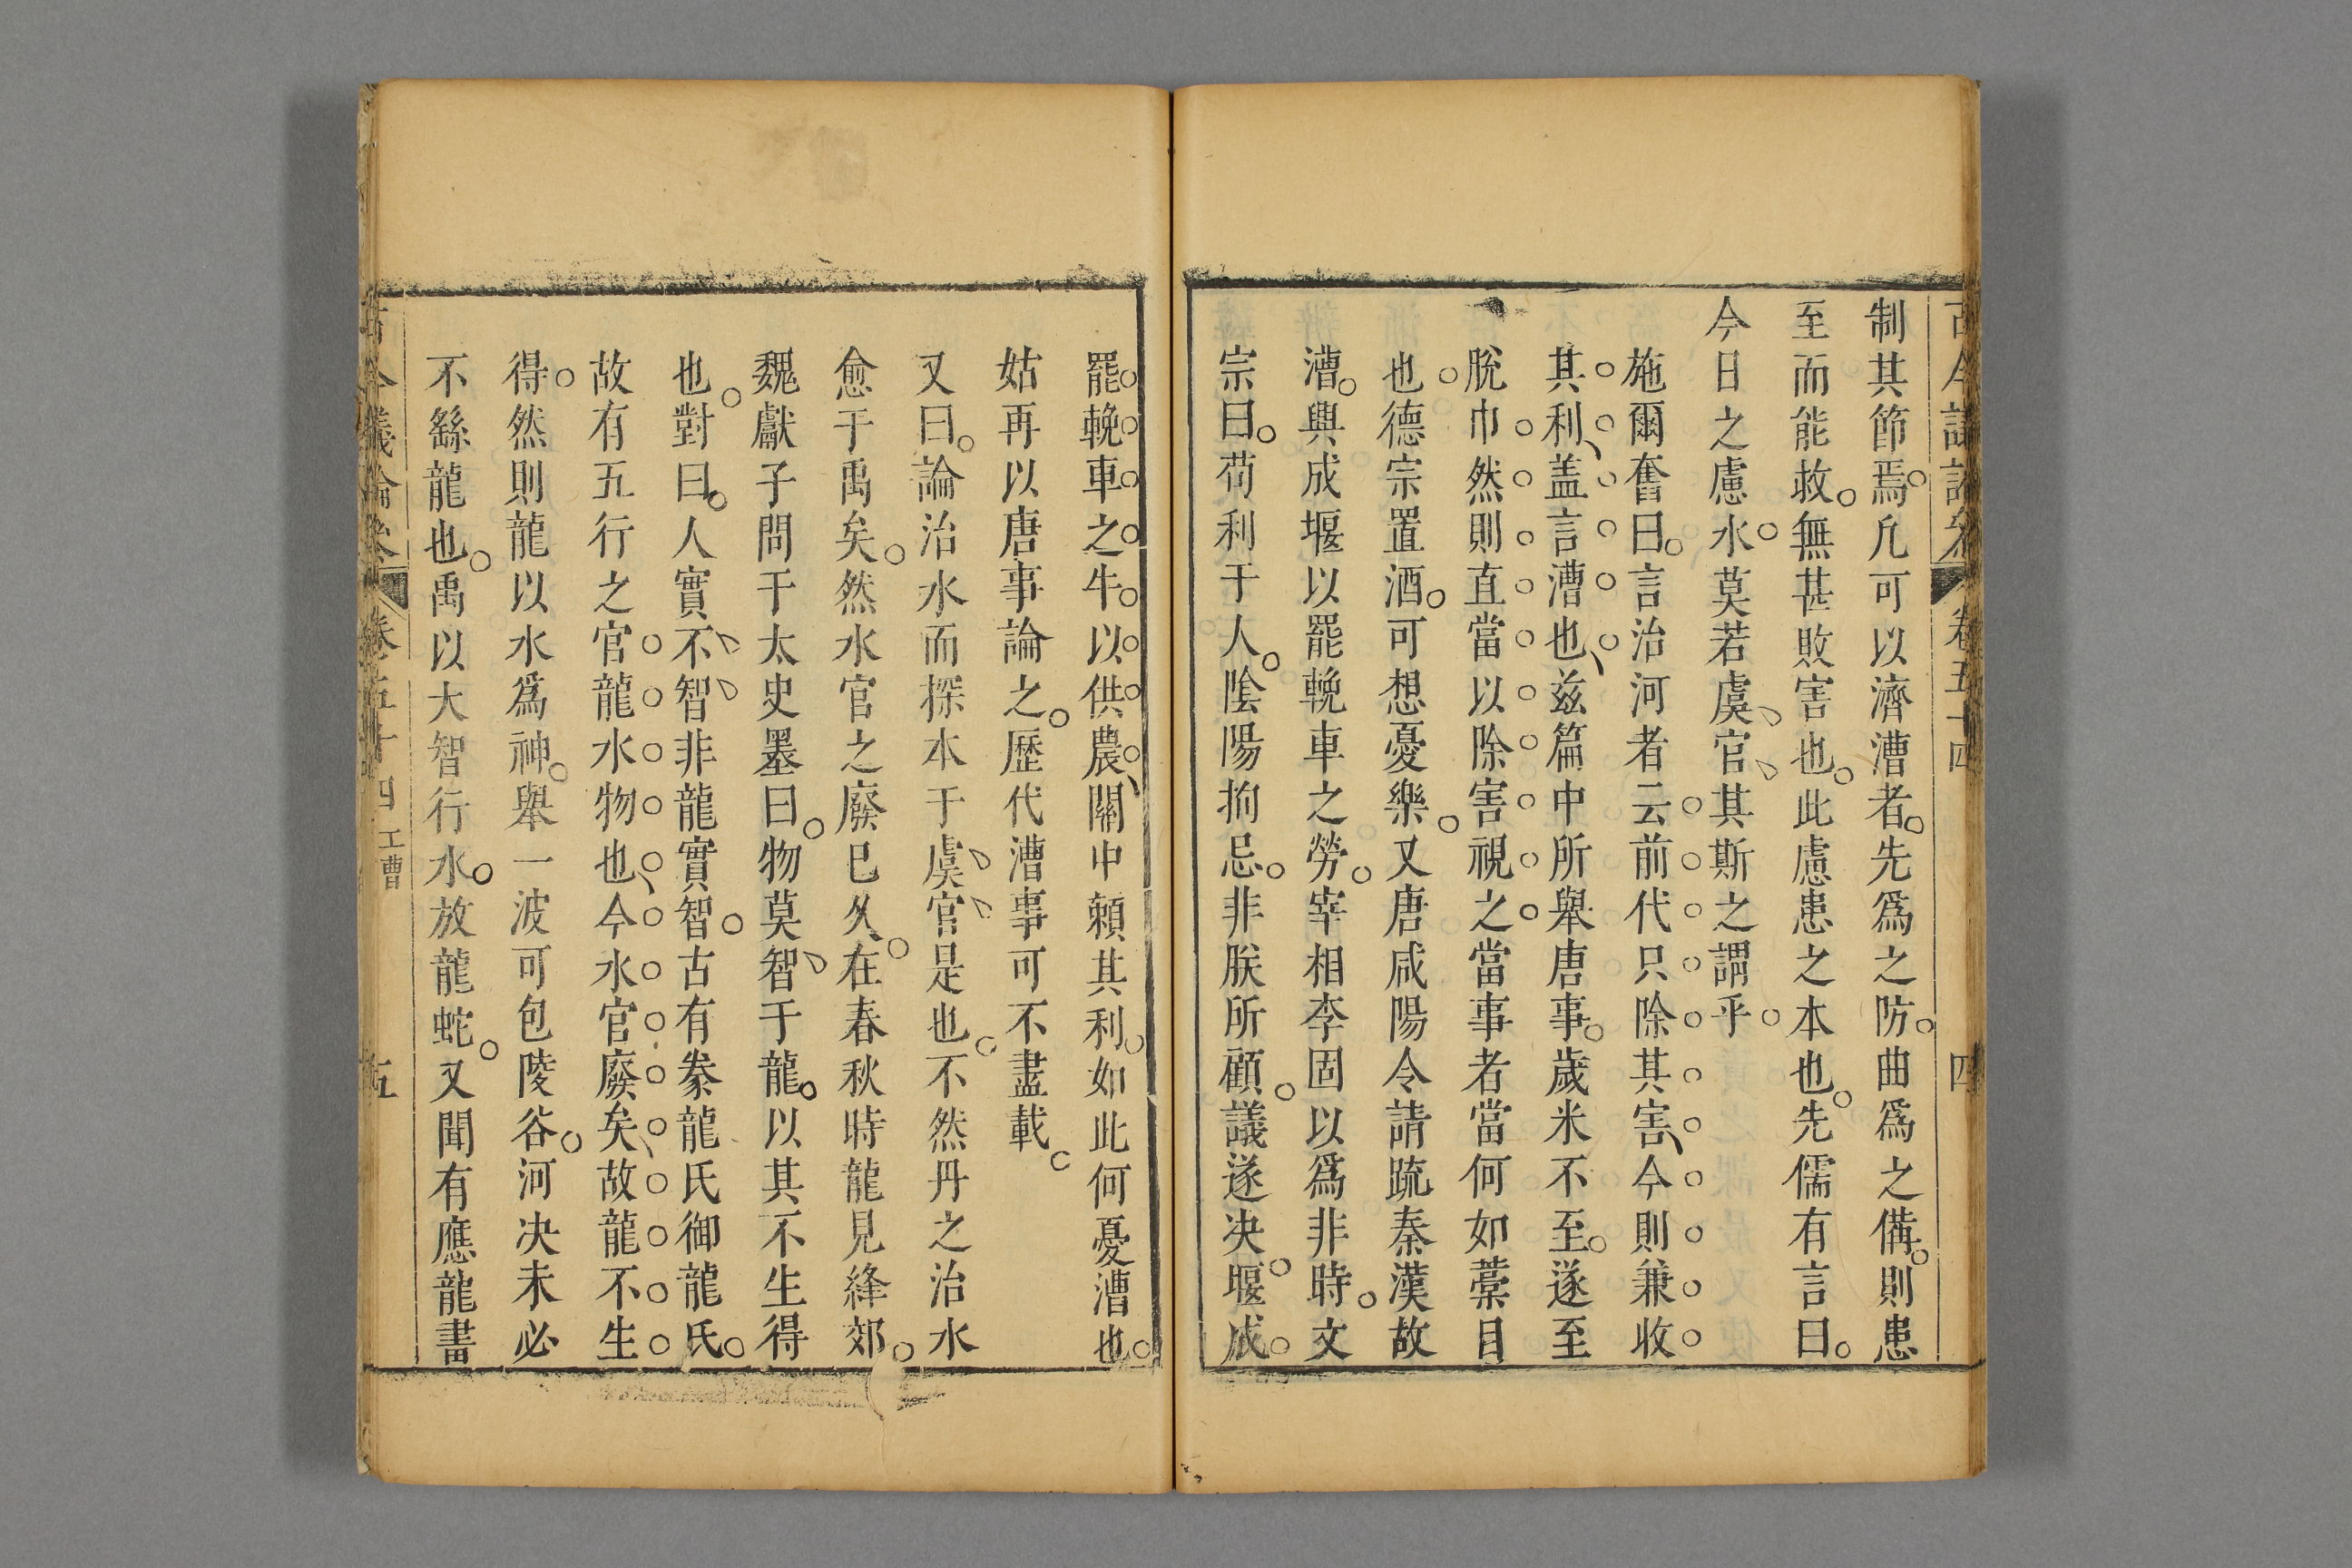 古今議論參 卷五十四 四
制其節焉。凡可以濟漕者。先爲之防。曲爲之備。則患
至而能救。無甚敗害也。此慮患之本也。先儒有言曰。
今日之慮水。莫若虞官。其斯之謂乎。
施爾奮曰。言治河者云前代只除其害、今則兼收
其利、盖言漕也、兹篇中所舉唐事。歲米不至。遂至
脫巾然則直當以除害視之。當事者當何如蒿目
也。德宗置酒。可想憂樂。又唐咸陽令請疏秦漢故
漕。興成堰以罷輓車之勞。宰相李固以爲非時。文
宗曰。苟利于人。陰陽拘忌。非朕所顧。議遂决。堰成。
罷輓車之牛以供農、關中賴其利。如此何憂漕也。
姑再以唐事論之。歷代漕事可不盡載。
又曰。論治水而探本于虞官是也。不然丹之治水
愈于禹矣。然水官之廢已久。在春秋時龍見絳郊。
魏獻子問于太史墨曰。物莫智于龍。以其不生得
也。對曰。人實不智非龍實智。古有豢龍氏御龍氏。
故有五行之官龍水物也、今水官廢矣、故龍不生
得。然則龍以水爲神。舉一波可包陵谷。河决未必
不繇龍也。禹以大智行水。放龍蛇。又聞有應龍畫
古今議論參 卷五十四 工曹 五